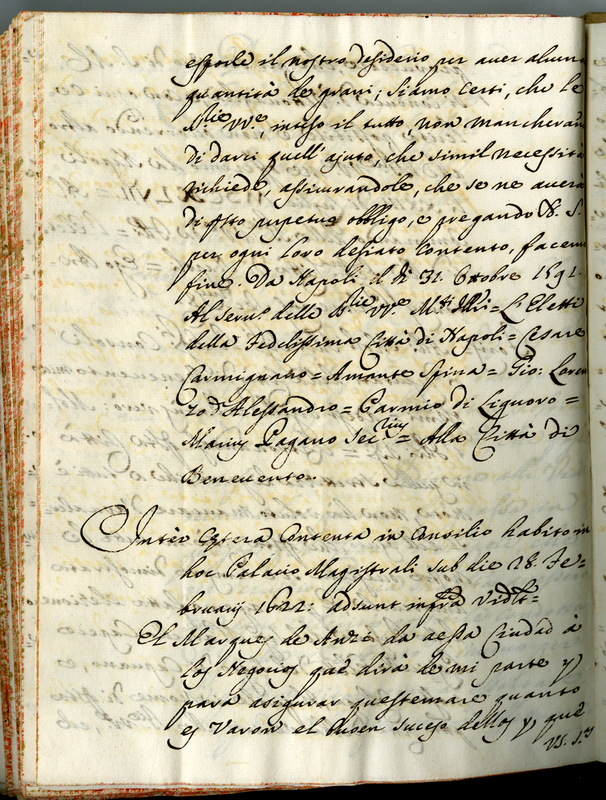 esporle il nostro desiderio per auer alcuna
quantità de grani; siamo certi, che le
S.rie VV.e, inteso il tutto, non mancheran
di darci quell'ajuto, che simil necessità
richiede, assicurandole, che se ne auerà
di fsto perpetuo obbligo, e pregando N. S.
per ogni loro desiato contento, facemo
fine. Da Napoli il dì 31. Ottobre 1591.
Al seru.o delle S.rie VV.e M.ti Ill.ri = L'Eletti
della Fedelissima Città di Napoli = Cesare
Carmignano = Amante Spina = Gio: Loren
zo d'Alessandro = Carmio di Liguoro =
Marius Pagano Sec.rius = Alla Città di
Beneuento.
Inter cętera contenta in Consilio habito in
hoc Palacio Magistrali sub die 28. Fe=
bruarij 1622: adsunt infrã vidlt=
El Marques de Anzi da aessa Ciudad à
los Negocios què dirà de mi parte y
para asigurar questemare quanto
es Varon el buen suceso dellos y què
VS. S.rs